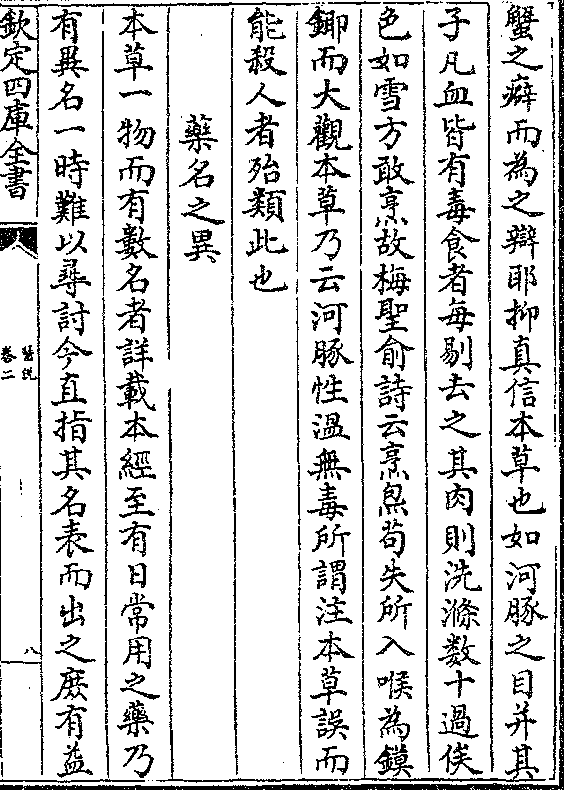 蟹之癖而為之辯耶抑真信本草也如河豚之目并其
子凡血皆有毒食者每剔去之其肉則洗滌数十過俟
色如雪方敢烹故梅聖俞詩云烹炰苟失所入喉為鏌
鎁而大觀本草乃云河豚性溫無毒所謂注本草誤而
能殺人者殆類此也
藥名之異
本草一物而有數名者詳載本經至有日常用之藥乃
有異名一時難以尋討今直指其名表而出之庶有益
欽定四庫全書
醫說
卷二
八